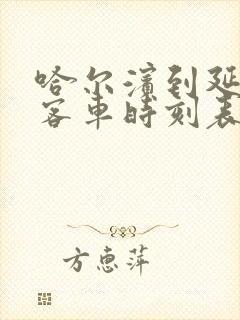 哈尔滨到延
客车时刻表
方惠萍